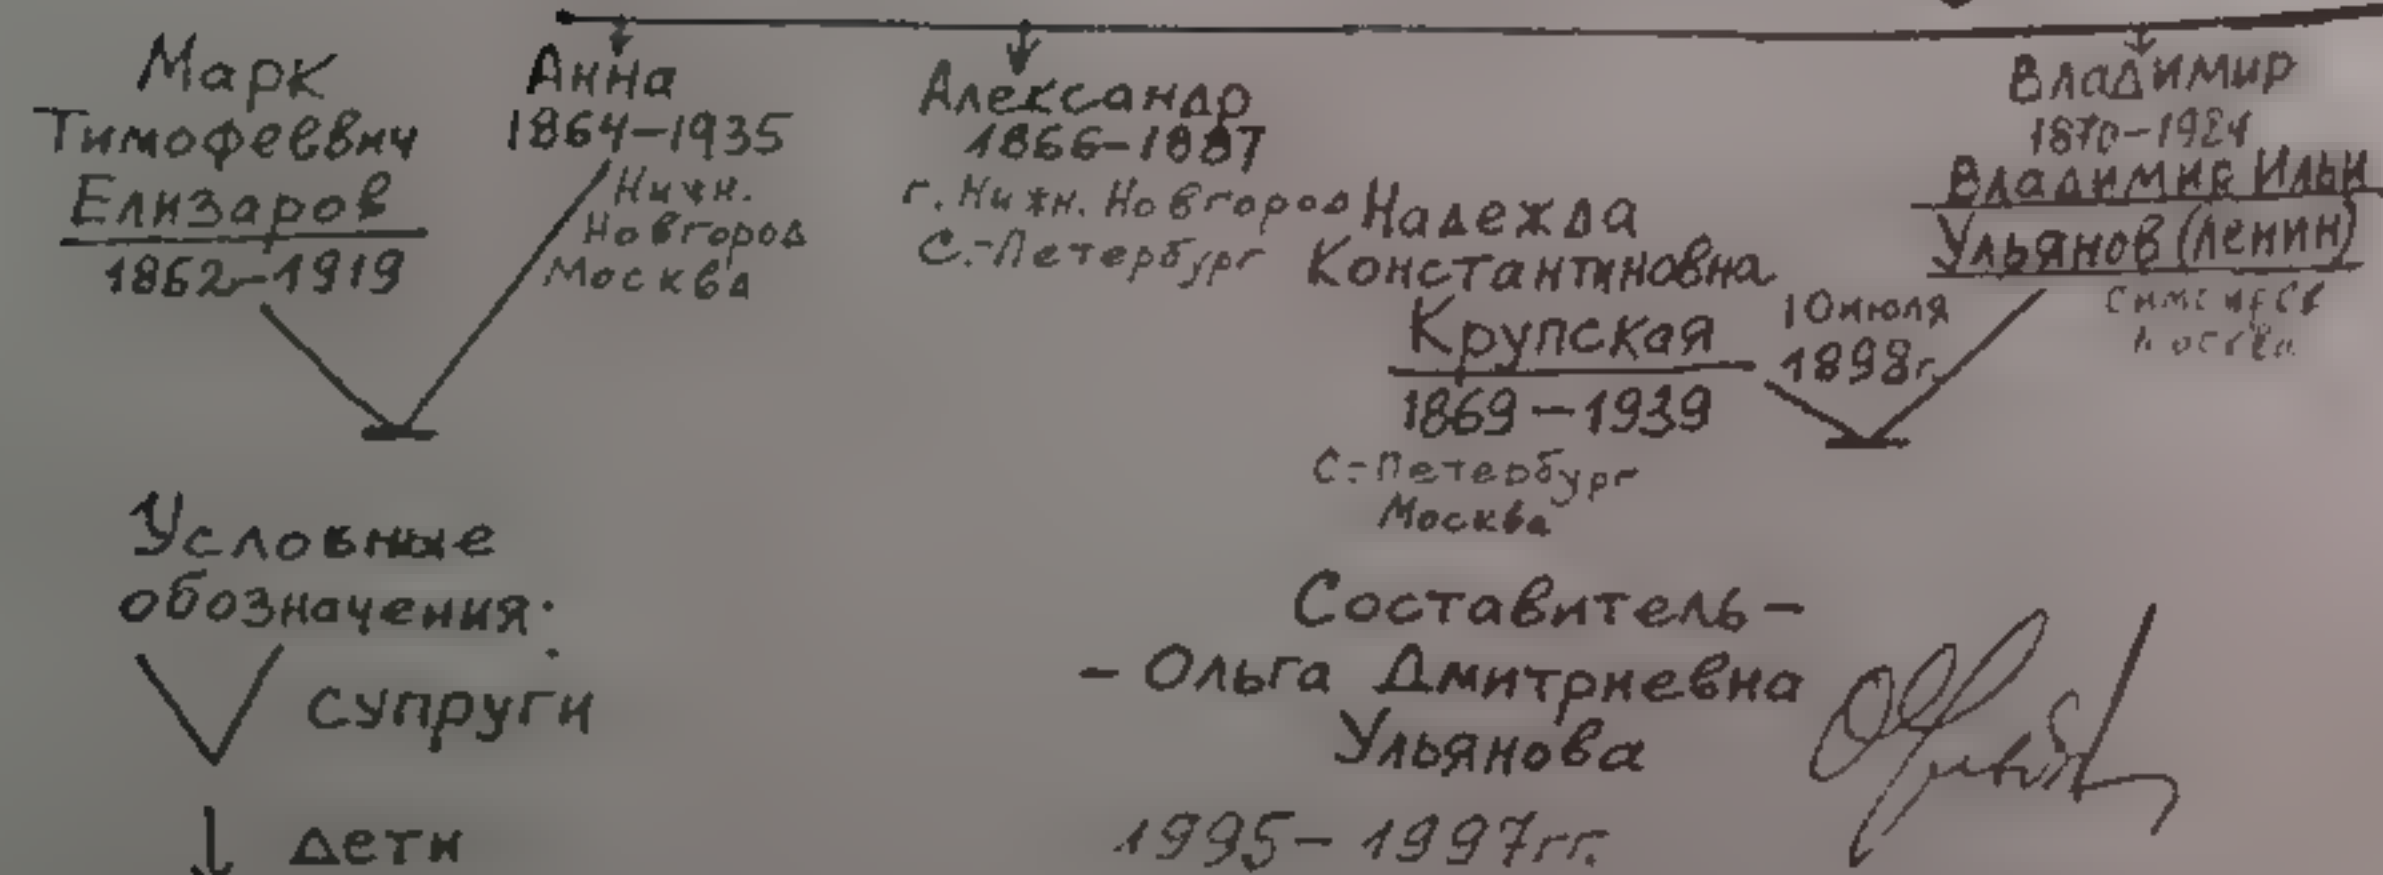 Марк
Тимофеевич
Елизаров
1862-1919
Анна
1864-1935
Нижн.
Новгород
Москва
Александр
1866-1887
г. Нижн. Новгород
С.-Петербург
Надежда
Константиновна
Крупская
1869-1939
С.-Петербург
Москва
10 июля
1898г.
Владимир
1870-1924
Владимир Ильи
Ульянов (Ленин)
Симбирск
Москва
Условные
обозначения:
супруги
дети
Составитель -
- Ольга Дмитриевна
Ульянова
1995-1997гг.